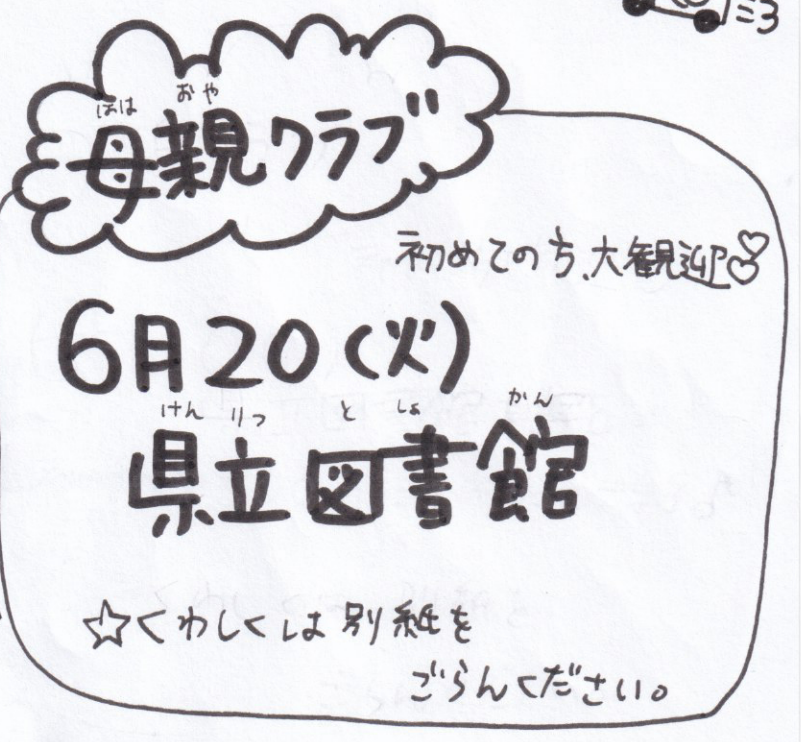 はは おや
母親クラブ
初めての方、大観迎♡♡
6月20(火)
けん りつ と しょ かん
県立図書館
☆くわしくは別紙を
ごらんください。